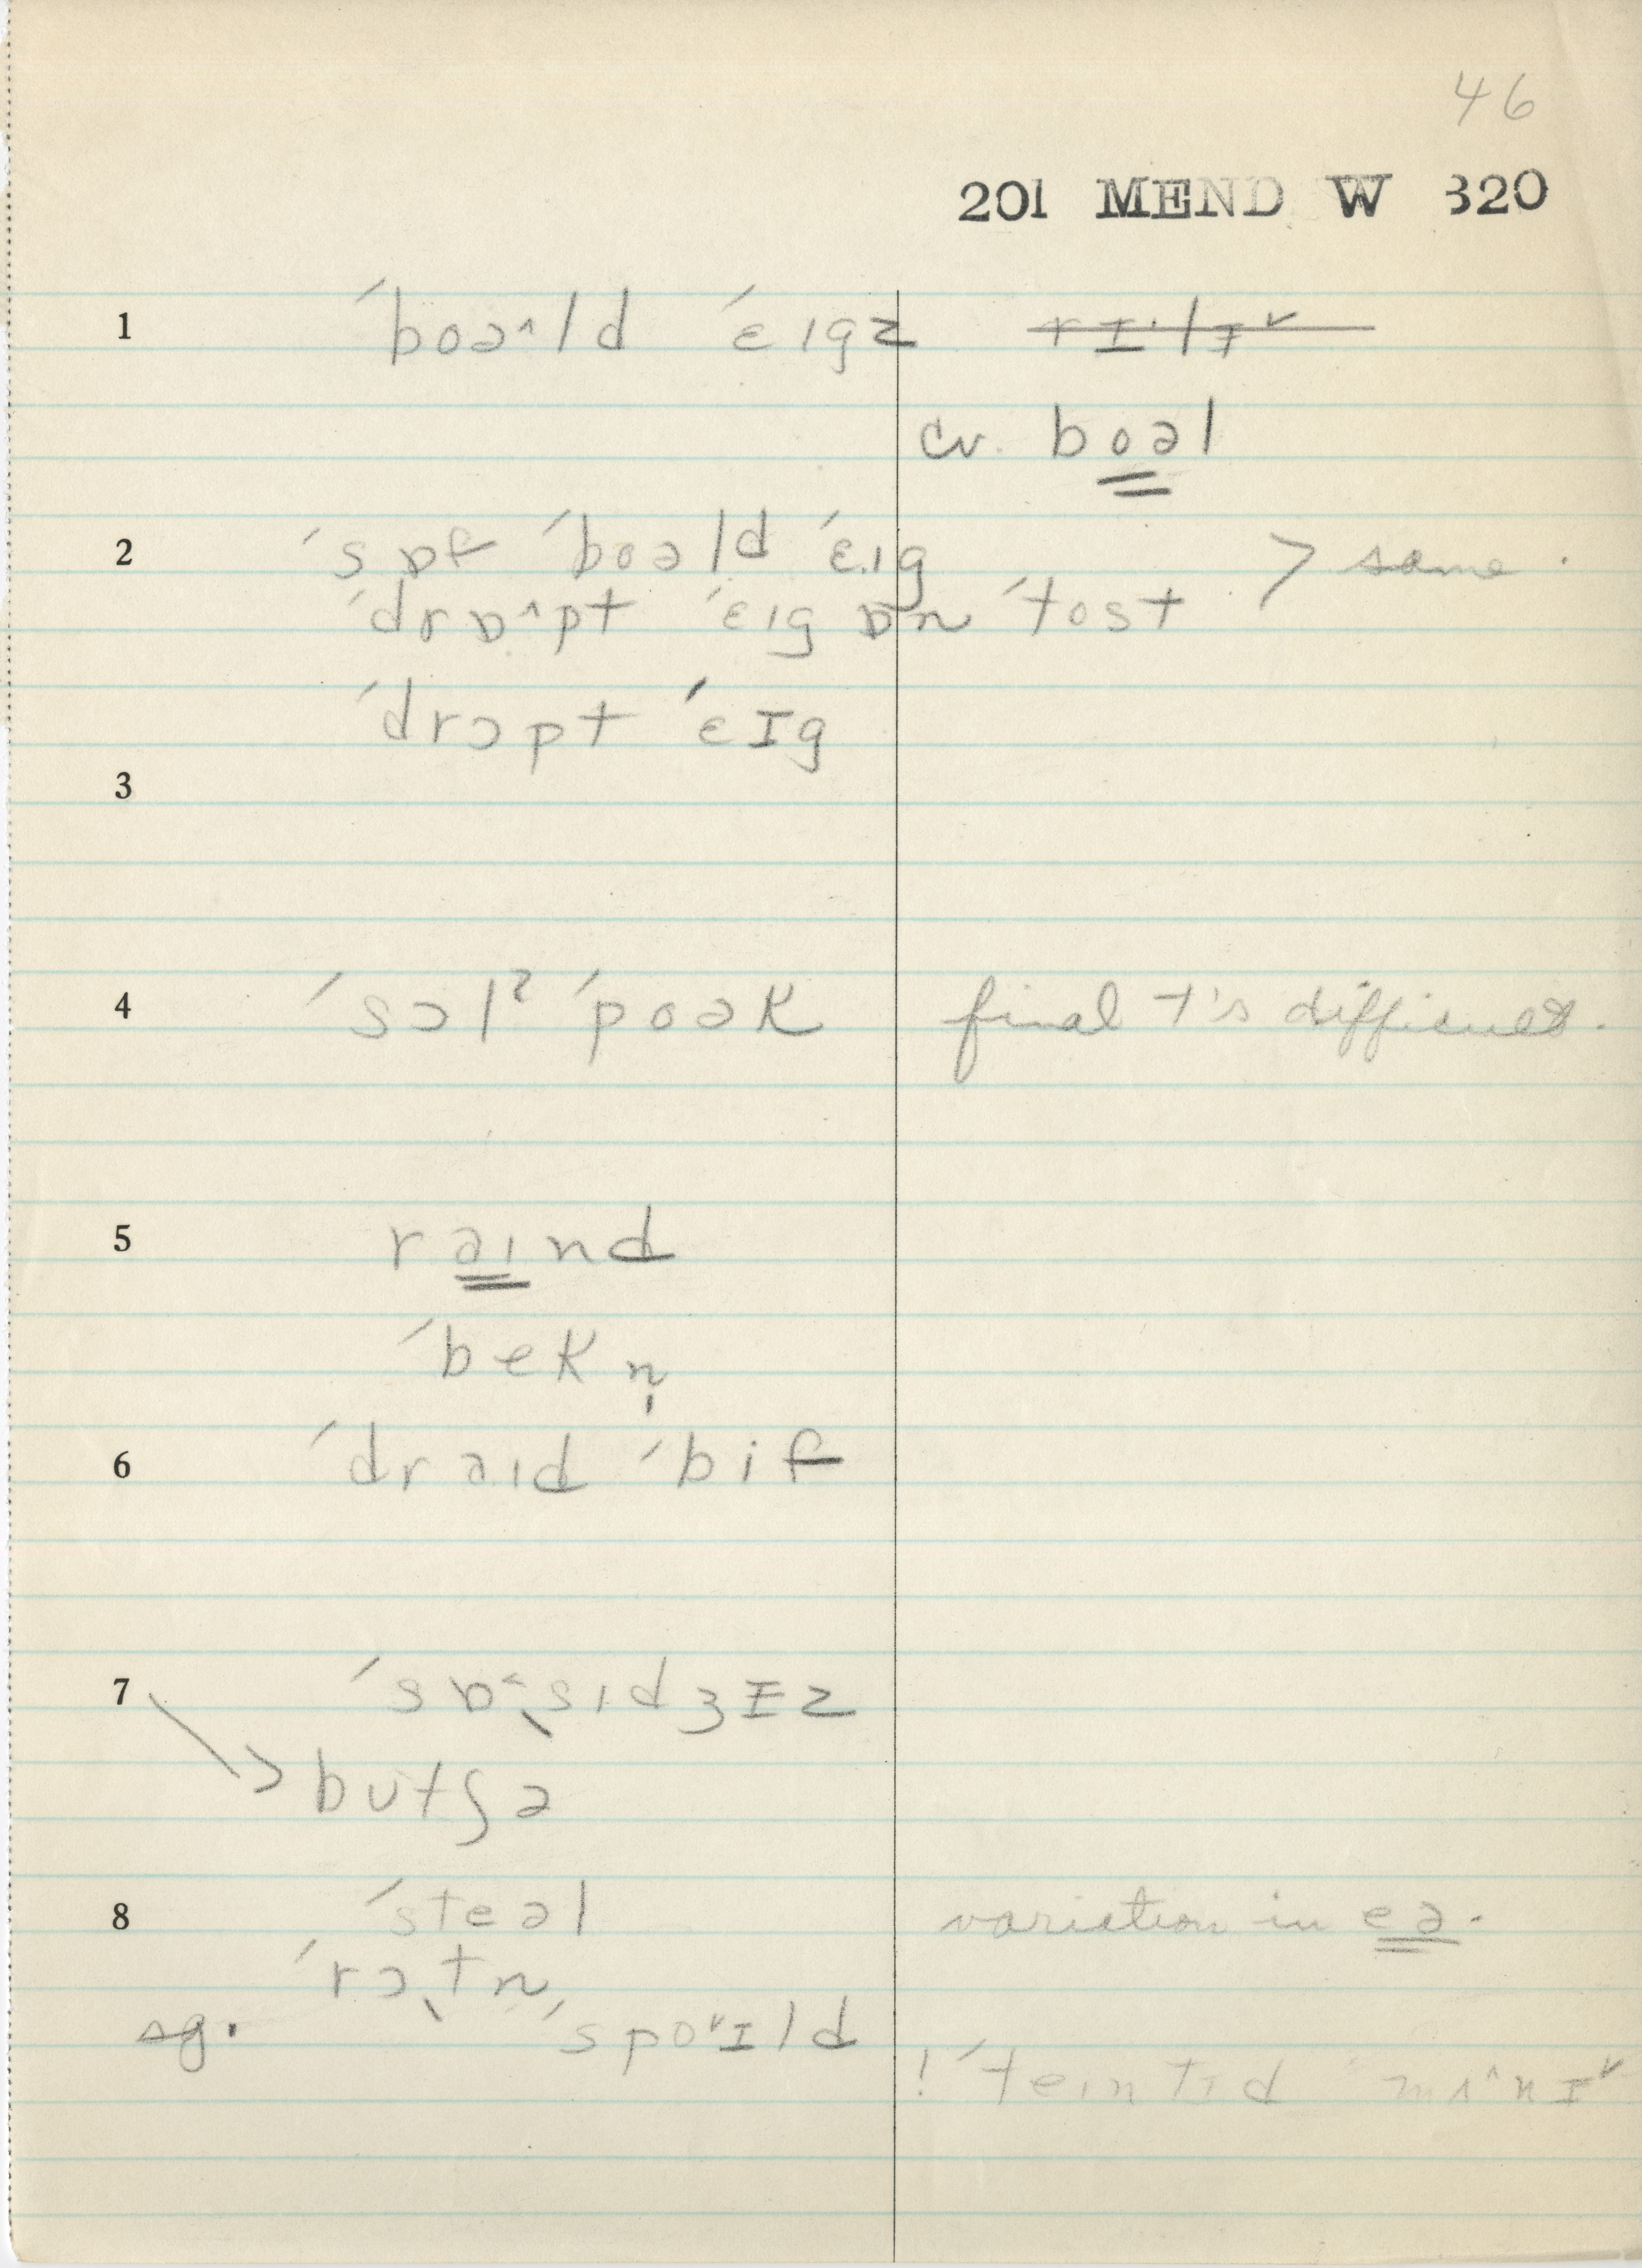 46
201 MEND W 320
1 ˊboə^ld ˊɛɪgz ~~rɪ·lɪ˅~~
cv. boəl
2 ˊsɒf ˊboəld ˊɛɪg > same.
ˊdrɒ^pt ˊɛɪg ɒn ˊtost
ˊdrɔpt ˊɛɪg
3
4 ˊsɔlˀ ˊpoək final t's difficult.
5 rəɪnd
ˊbekn̩
6 ˊdrəɪd ˊbif
7 ˊsɒ˂sɪdʒɪz
> butʃə
8 ˊsteəl variation in eə.
ˊrɔtn̩
sg. ˊspo˅ɪld
! ˊteɪntɪd mʌ^nɪ˅